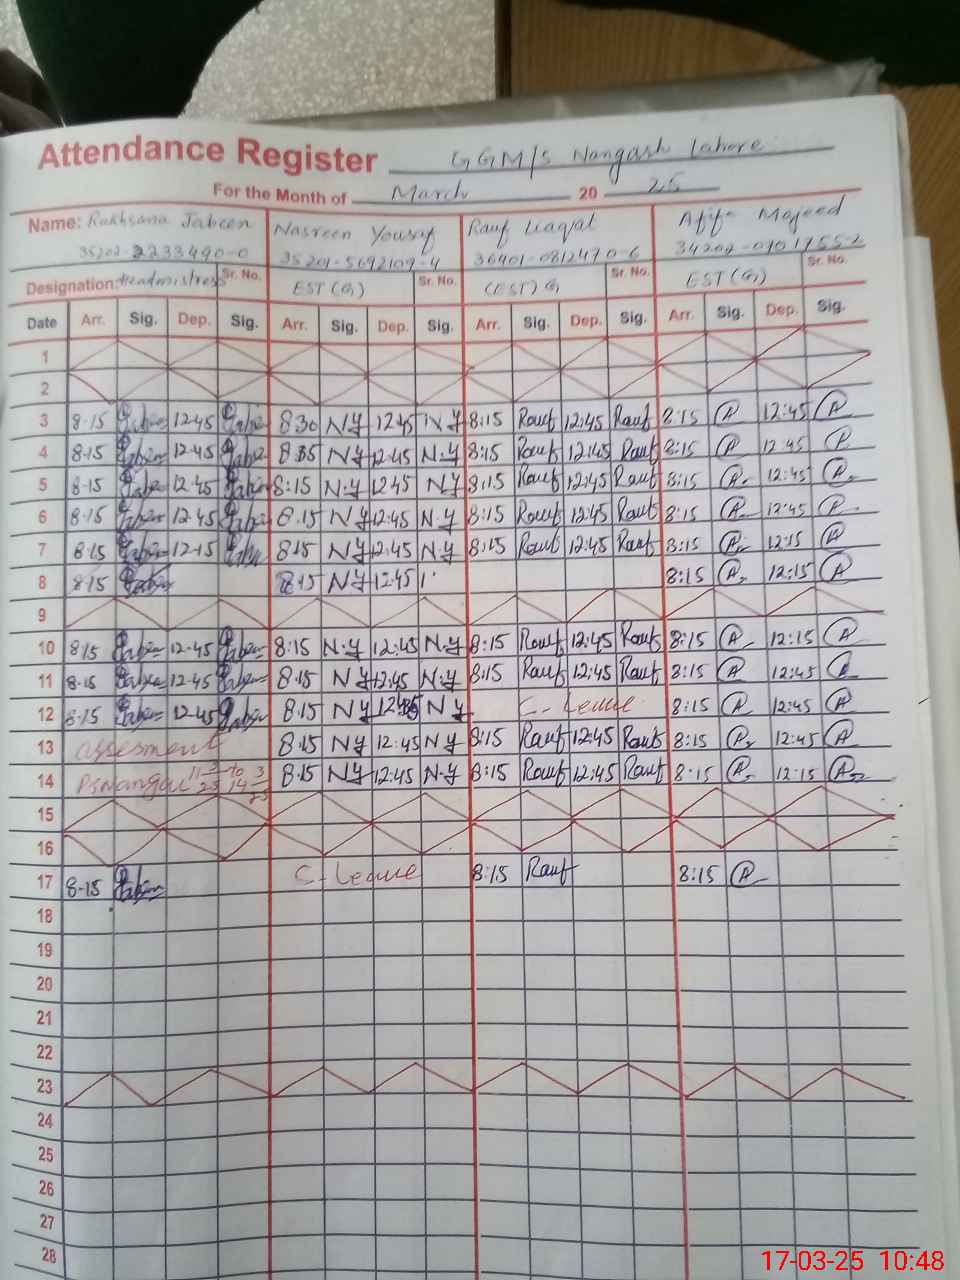 Attendance Register GGM/S Nangash Lahore
For the Month of March 20 25
Name: Rukhsana Jabeen Nasreen Yousuf Rauf Liaqat Afifa Majeed
35202-2233490-0 35201-5692109-4 36401-0812470-6
Designation: Headmistress Sr. No. EST (G) Sr. No. (EST) G Sr. No. EST (G) Sr. No.
Date Arr. Sig. Dep. Sig. Arr. Sig. Dep. Sig. Arr. Sig. Dep. Sig. Arr. Sig. Dep. Sig.
1
2
3 8·15 Jabeen 12·45 Jabeen 8·30 N.Y 12:45 N.Y 8:15 Rauf 12:45 Rauf 8:15 A 12:45 A
4 8·15 Jabeen 12·45 Jabeen 8:35 N.Y 12:45 N.Y 8:15 Rauf 12:45 Rauf 8:15 A 12:45 A
5 8·15 Jabeen 12·45 Jabeen 8:15 N.Y 12:45 N.Y 8:15 Rauf 12:45 Rauf 8:15 A 12:45 A
6 8·15 Jabeen 12·45 Jabeen 8·15 N.Y 12:45 N.Y 8:15 Rauf 12:45 Rauf 8:15 A 12:45 A
7 8·15 Jabeen 12·15 Jabeen 8·15 N.Y 12:45 N.Y 8:15 Rauf 12:45 Rauf 8:15 A 12:15 A
8 8·15 Jabeen 8·15 N.Y 12:45 8:15 A 12:15 A
9
10 8·15 Jabeen 12·45 Jabeen 8:15 N.Y 12:45 N.Y 8:15 Rauf 12:45 Rauf 8:15 A 12:15 A
11 8·15 Jabeen 12·45 Jabeen 8·15 N.Y 12:45 N.Y 8:15 Rauf 12:45 Rauf 8:15 A 12:45 A
12 8·15 Jabeen 12·45 Jabeen 8·15 N.Y 12:45 N.Y C- Leave 8:15 A 12:45 A
13 assesment 8·15 N.Y 12:45 N.Y 8:15 Rauf 12:45 Rauf 8:15 A 12:45 A
14 to 8·15 N.Y 12:45 N.Y 8:15 Rauf 12:45 Rauf 8·15 A 12:15 A
15
16
17 8·15 Jabeen C-Leave 8:15 Rauf 8:15 A
18
19
20
21
22
23
24
25
26
27
28
17-03-25 10:48